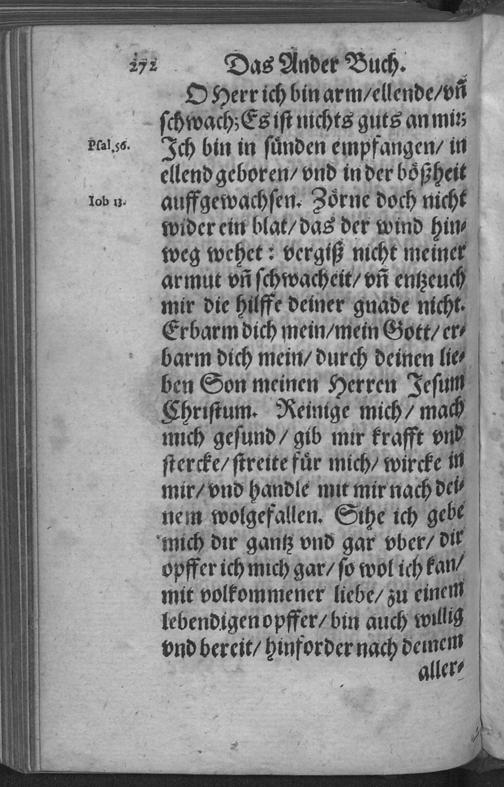 272 Das Ander Buch.
O Herr ich bin arm/ellende/vñ
schwach; Es ist nichts guts an mir;
Psal. 56. Jch bin in sünden empfangen/ in
ellend geboren/ vnd in der bößheit
Iob 13. auffgewachsen. Zörne doch nicht
wider ein blat/ das der wind hin⸗
weg wehet: vergiß nicht meiner
armut vñ schwacheit/ vñ entzeuch
mir die hilffe deiner gnade nicht.
Erbarm dich mein/mein Gott/ er⸗
barm dich mein/ durch deinen lie⸗
ben Son meinen Herren Jesum
Christum. Reinige mich/ mach
mich gesund/ gib mir krafft vnd
stercke/ streite für mich/ wircke in
mir/ vnd handle mit mir nach dei⸗
nem wolgefallen. Sihe ich gebe
mich dir gantz vnd gar vber/ dir
opffer ich mich gar/ so wol ich kan/
mit volkommener liebe/ zu einem
lebendigen opffer/ bin auch willig
vnd bereit/ hinforder nach deinem
aller⸗